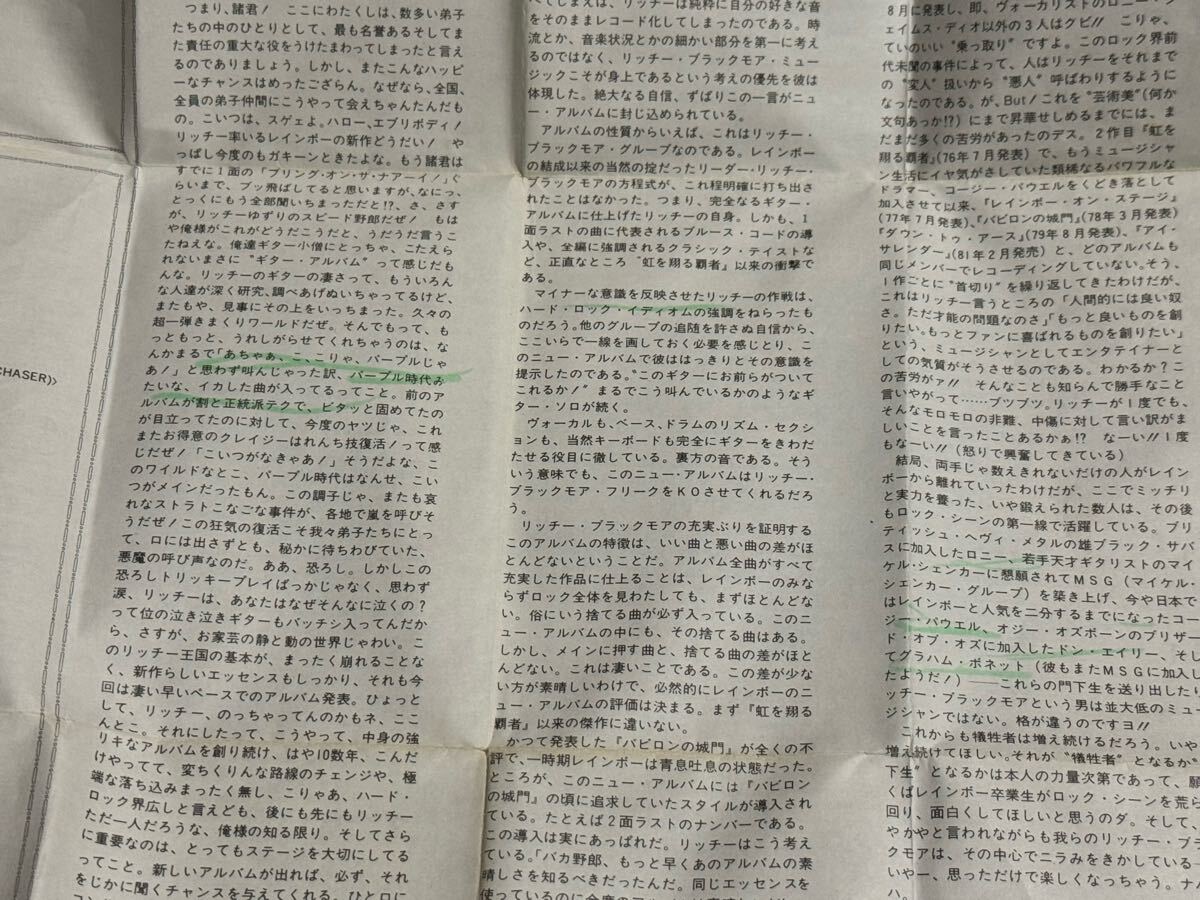 CHASER)》
つまり、諸君！　ここにわたくしは、数多い弟子
たちの中のひとりとして、最も名誉あるそしてま
た責任の重大な役をうけたまわってしまったと言え
るのでありましょう。しかし、またこんなハッピ
ーなチャンスはめったござらん。なぜなら、全国、
全員の弟子仲間にこうやって会えちゃんたんだも
の。こいつは、スゲェよ。ハロー、エブリボディ！
リッチー率いるレインボーの新作どうだい！　や
っぱし今度のもガキーンときたよな。もう諸君は
すでに1面の「ブリング・オン・ザ・ナアーイ！」ぐ
らいまで、ブッ飛ばしてると思いますが、なにっ、
とっくにもう全部聞いちまっただと!?、さ、さす
が、リッチーゆずりのスピード野郎だぜ！　もは
や俺様がこれがどうだこうだと、うだうだ言うこ
たねえな。俺達ギター小僧にとっちゃ、こたえら
れないまさに“ギター・アルバム”って感じだも
んな。リッチーのギターの凄さって、もういろん
な人達が深く研究、調べあげぬいちゃってるけど、
またもや、見事にその上をいっちまった。久々の
超一弾きまくりワールドだぜ。そんでもって、も
っともっと、うれしがらせてくれちゃうのは、な
んかまるで「あちゃぁ、こ、こりゃ、パープルじゃ
あ！」と思わず叫んじゃった訳、パープル時代み
たいな、イカした曲が入ってるってこと。前のア
ルバムが割と正統派テクで、ビタッと固めてたの
が目立ってたのに対して、今度のヤツじゃ、これ
またお得意のクレイジーはれんち技復活！って感
じだぜ！「こいつがなきゃあ！」そうだよな、こ
のワイルドなとこ、パープル時代はなんせ、こい
つがメインだったもん。この調子じゃ、またも哀
れなストラトこなごな事件が、各地で嵐を呼びそ
うだぜ！この狂気の復活こそ我々弟子たちにとっ
て、口には出さずとも、秘かに待ちわびていた、
悪魔の呼び声なのだ。ああ、恐ろし。しかしこの
恐ろしトリッキープレイばっかじゃなく、思わず
涙、リッチーは、あなたはなぜそんなに泣くの？
って位の泣き泣きギターもバッチシ入ってんだか
ら、さすが、お家芸の静と動の世界じゃわい。こ
のリッチー王国の基本が、まったく崩れることな
く、新作らしいエッセンスもしっかり、それも今
回は凄い早いペースでのアルバム発表。ひょっと
して、リッチー、のっちゃってんのかもネ、ここ
んとこ。それにしたって、こうやって、中身の強
リキなアルバムを創り続け、はや10数年、こんだ
けやってて、変ちくりんな路線のチェンジや、極
端な落ち込みまったく無し、こりゃあ、ハード・
ロック界広しと言えども、後にも先にもリッチー
ただ一人だろうな、俺様の知る限り。そしてさら
に重要なのは、とってもステージを大切にしてる
ってこと。新しいアルバムが出れば、必ず、それ
をじかに聞くチャンスを与えてくれる。ひと口に
べてしまえば、リッチーは純粋に自分の好きな音
をそのままレコード化してしまったのである。時
流とか、音楽状況とかの細かい部分を第一に考え
るのではなく、リッチー・ブラックモア・ミュー
ジックこそが身上であるという考えの優先を彼は
体現した。絶大なる自信、ずばりこの一言がニュ
ー・アルバムに封じ込められている。
アルバムの性質からいえば、これはリッチー・
ブラックモア・グループなのである。レインボー
の結成以来の当然の掟だったリーダー・リッチー・
ブラックモアの方程式が、これ程明確に打ち出さ
れたことはなかった。つまり、完全なるギター・
アルバムに仕上げたリッチーの自身。しかも、1
面ラストの曲に代表されるブルース・コードの導
入や、全編に強調されるクラシック・テイストな
ど、正直なところ“虹を翔る覇者”以来の衝撃で
ある。
マイナーな意識を反映させたリッチーの作戦は、
ハード・ロック・イディオムの強調をねらったも
のだろう。他のグループの追随を許さぬ自信から、
ここいらで一線を画しておく必要を感じとり、こ
のニュー・アルバムで彼ははっきりとその意識を
提示したのである。“このギターにお前らがついて
これるか！”まるでこう叫んでいるかのようなギ
ター・ソロが続く。
ヴォーカルも、ベース、ドラムのリズム・セクシ
ョンも、当然キーボードも完全にギターをきわだ
たせる役目に徹している。裏方の音である。そう
いう意味でも、このニュー・アルバムはリッチー・
ブラックモア・フリークをKOさせてくれるだろ
う。
リッチー・ブラックモアの充実ぶりを証明する
このアルバムの特徴は、いい曲と悪い曲の差がほ
とんどないということだ。アルバム全曲がすべて
充実した作品に仕上ることは、レインボーのみな
らずロック全体を見わたしても、まずほとんどな
い。俗にいう捨てる曲が必ず入っている。このニ
ュー・アルバムの中にも、その捨てる曲はある。
しかし、メインに押す曲と、捨てる曲の差がほと
んどない。これは凄いことである。この差の少な
い方が素晴しいわけで、必然的にレインボーのニ
ュー・アルバムの評価は決まる。まず『虹を翔る
覇者』以来の傑作に違いない。
かつて発表した『バビロンの城門』が全くの不
評で、一時期レインボーは青息吐息の状態だった。
ところが、このニュー・アルバムには『バビロン
の城門』の頃に追求していたスタイルが導入され
ている。たとえば2面ラストのナンバーである。
この導入は実にあっぱれだ。リッチーはこう考え
ている。「バカ野郎、もっと早くあのアルバムの素
晴しさを知るべきだったんだ。同じエッセンスを
8月に発表し、即、ヴォーカリストのロニー・ジ
ェイムス・ディオ以外の3人はクビ!!　こりゃ、
ていのいい“乗っ取り”ですよ。このロック界前
代未聞の事件によって、人はリッチーをそれまで
の“変人”扱いから“悪人”呼ばわりするように
なったのである。が、But！これを“芸術美”(何か
文句あっか!?)にまで昇華せしめるまでには、ま
だまだ多くの苦労があったのデス。2作目『虹を
翔る覇者』(76年7月発表)で、もうミュージシャ
ン生活にイヤ気がさしていた類稀なるパワフルな
ドラマー、コージー・パウエルをくどき落として
加入させて以来、『レインボー・オン・ステージ』
(77年7月発表)、『バビロンの城門』(78年3月発表)
『ダウン・トゥ・アース』(79年8月発表)、『アイ・
サレンダー』(81年2月発売)と、どのアルバムも
同じメンバーでレコーディングしていない。そう、
1作ごとに“首切り”を繰り返してきたわけだが、
これはリッチー言うところの「人間的には良い奴
さ。ただ才能の問題なのさ」「もっと良いものを創
りたい。もっとファンに喜ばれるものを創りたい」
という、ミュージシャンとしてエンタテイナーと
しての気質がそうさせるのである。わかるか？こ
の苦労がァ!!　そんなことも知らんで勝手なこと
言いやがって……ブツブツ。リッチーが1度でも、
そんなモロモロの非難、中傷に対して言い訳がま
しいことを言ったことあるかぁ!?　なーい!!1度
もなーい!!(怒りで興奮してきている)
結局、両手じゃ数えきれないだけの人がレイン
ボーから離れていったわけだが、ここでミッチリ
と実力を養った、いや鍛えられた数人は、その後
もロック・シーンの第一線で活躍している。ブリ
ティッシュ・ヘヴィ・メタルの雄ブラック・サバ
スに加入したロニー、若手天才ギタリストのマイ
ケル・シェンカーに懇願されてMSG(マイケル・
シェンカー・グループ)を築き上げ、今や日本で
はレインボーと人気を二分するまでになったコー
ジー・パウエル、オジー・オズボーンのブリザー
ド・オブ・オズに加入したドン・エイリー、そし
てグラハム・ボネット(彼もまたMSGに加入し
たようだ！)――これらの門下生を送り出したリ
ッチー・ブラックモアという男は並大低のミュー
ジシャンではない。格が違うのですヨ!!
これからも犠牲者は増え続けるだろう。いや、
増え続けてほしい。それが“犠牲者”となるか“
下生”となるかは本人の力量次第であって、願
くばレインボー卒業生がロック・シーンを荒ら
回り、面白くしてほしいと思うのダ。そして、
やかやと言われながらも我らのリッチー・ブラ
クモアは、その中心でニラみをきかしている
いやー、思っただけで楽しくなっちゃう。ナハ
ハ。